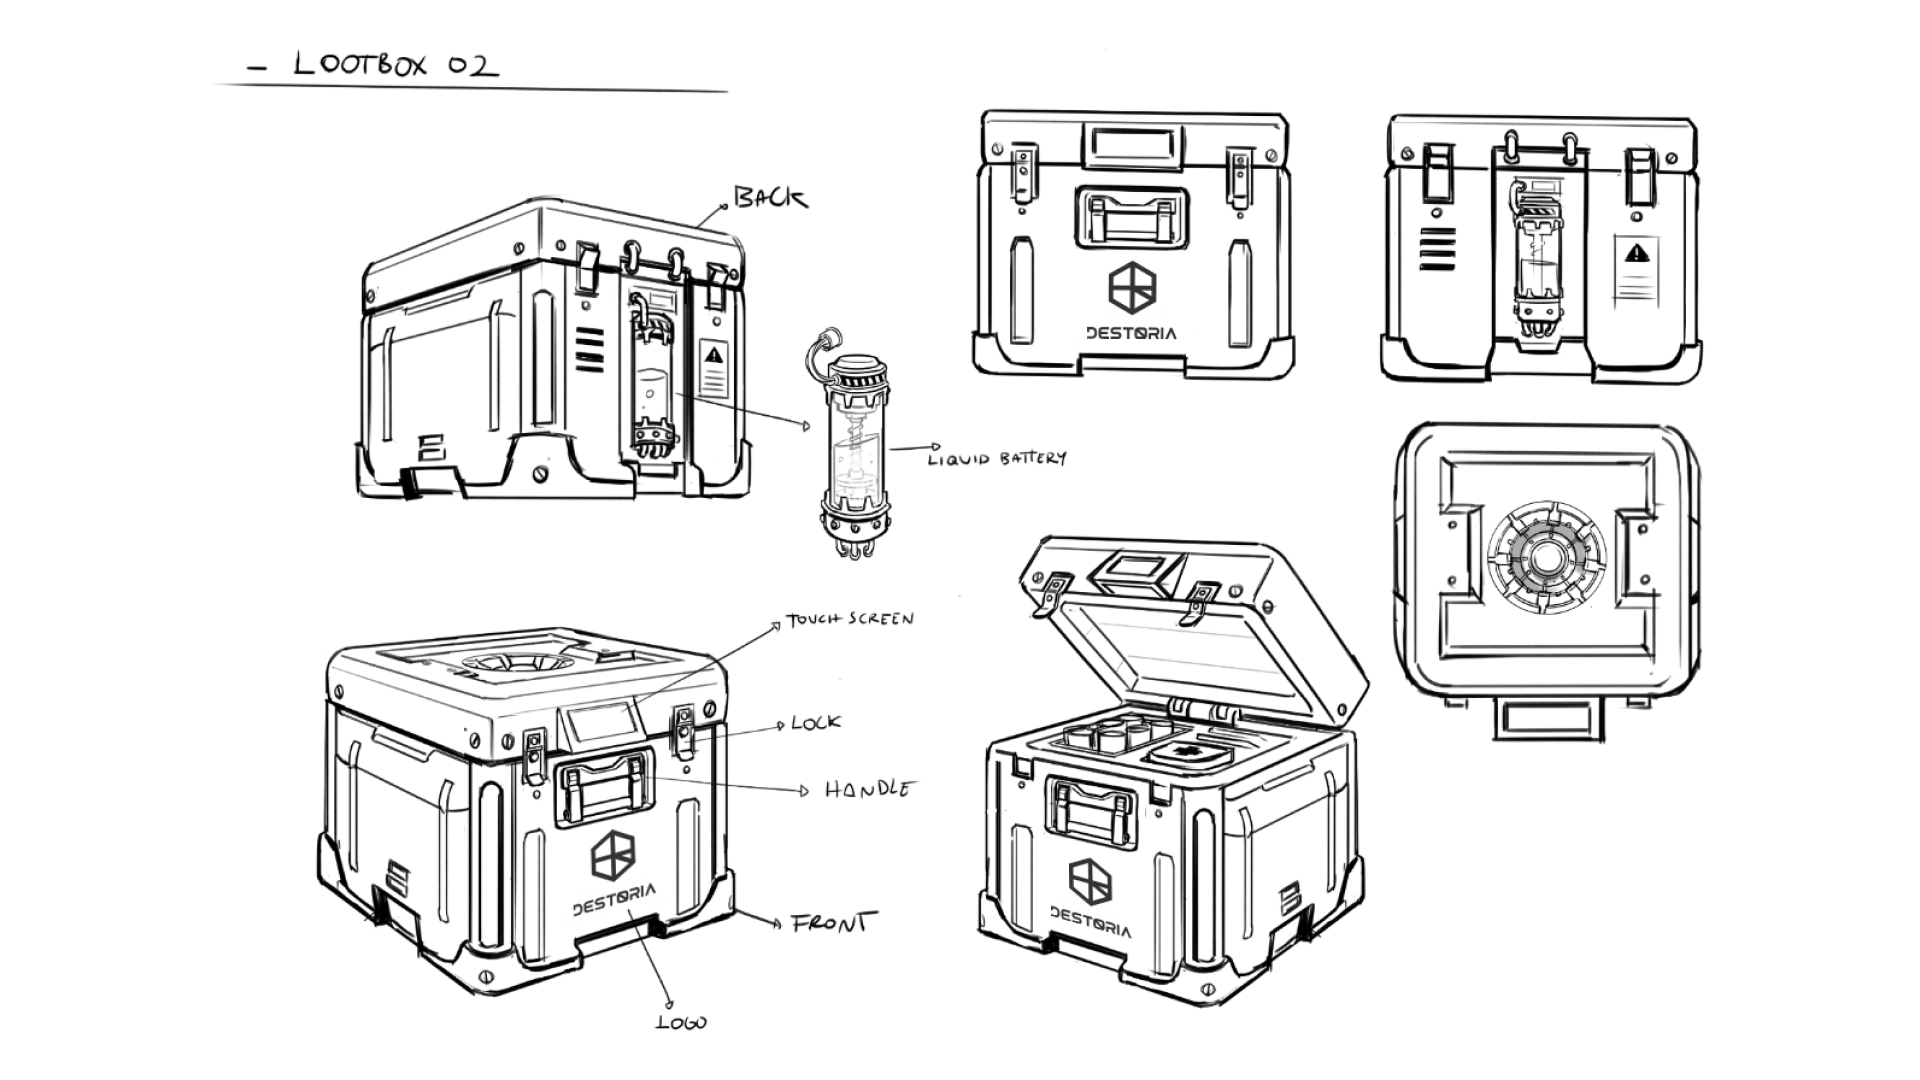 - LOOTBOX 02
BACK
LIQUID BATTERY
DESTORIA
TOUCH SCREEN
LOCK
HANDLE
DESTORIA
FRONT
LOGO
DESTORIA